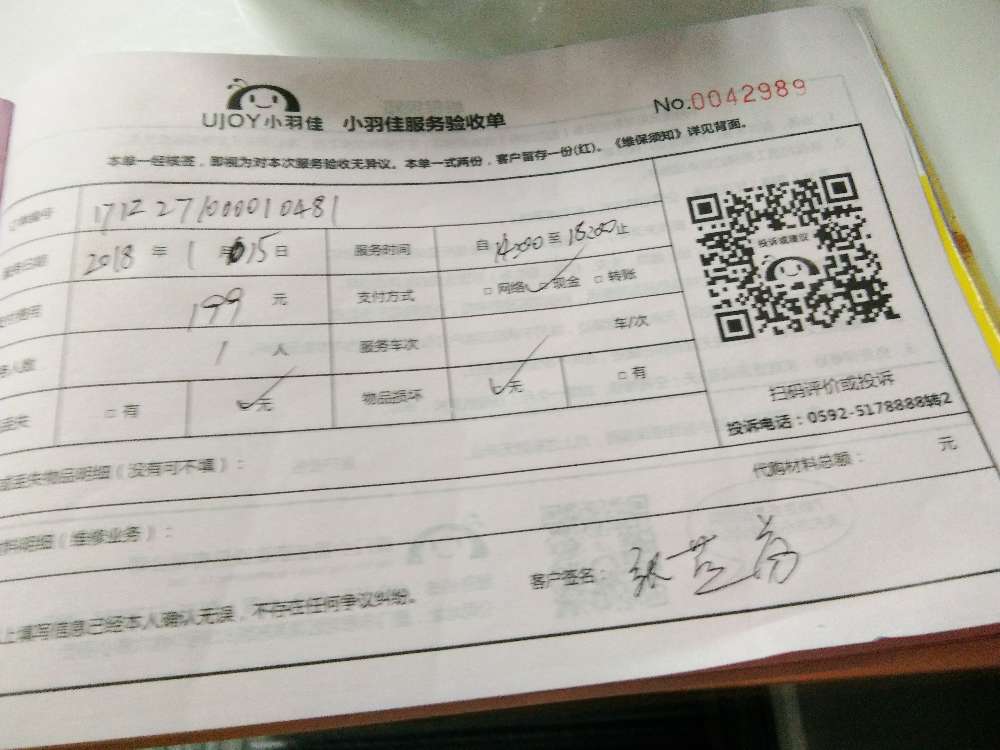 UJOY小羽佳 小羽佳服务验收单 No.0042989
本单一经续签，即视为对本次服务验收无异议。本单一式两份，客户暂存一份(红)。《维保须知》详见背面。
1712271000010481
2018 年 1 月 15 日 服务时间 自 至 止
199 元 支付方式 □ 网络 现金 □ 转账
1 人 服务车次 车/次
丢失 □ 有 无 物品损坏 无 □ 有
投诉或建议
扫码评价或投诉
投诉电话：0592-5178888转2
或丢失物品明细（没有可不填）：
材料明细（维修业务）： 代购材料总额： 元
上填写信息已经本人确认无误，不存在任何争议纠纷。 客户签名： 张芸